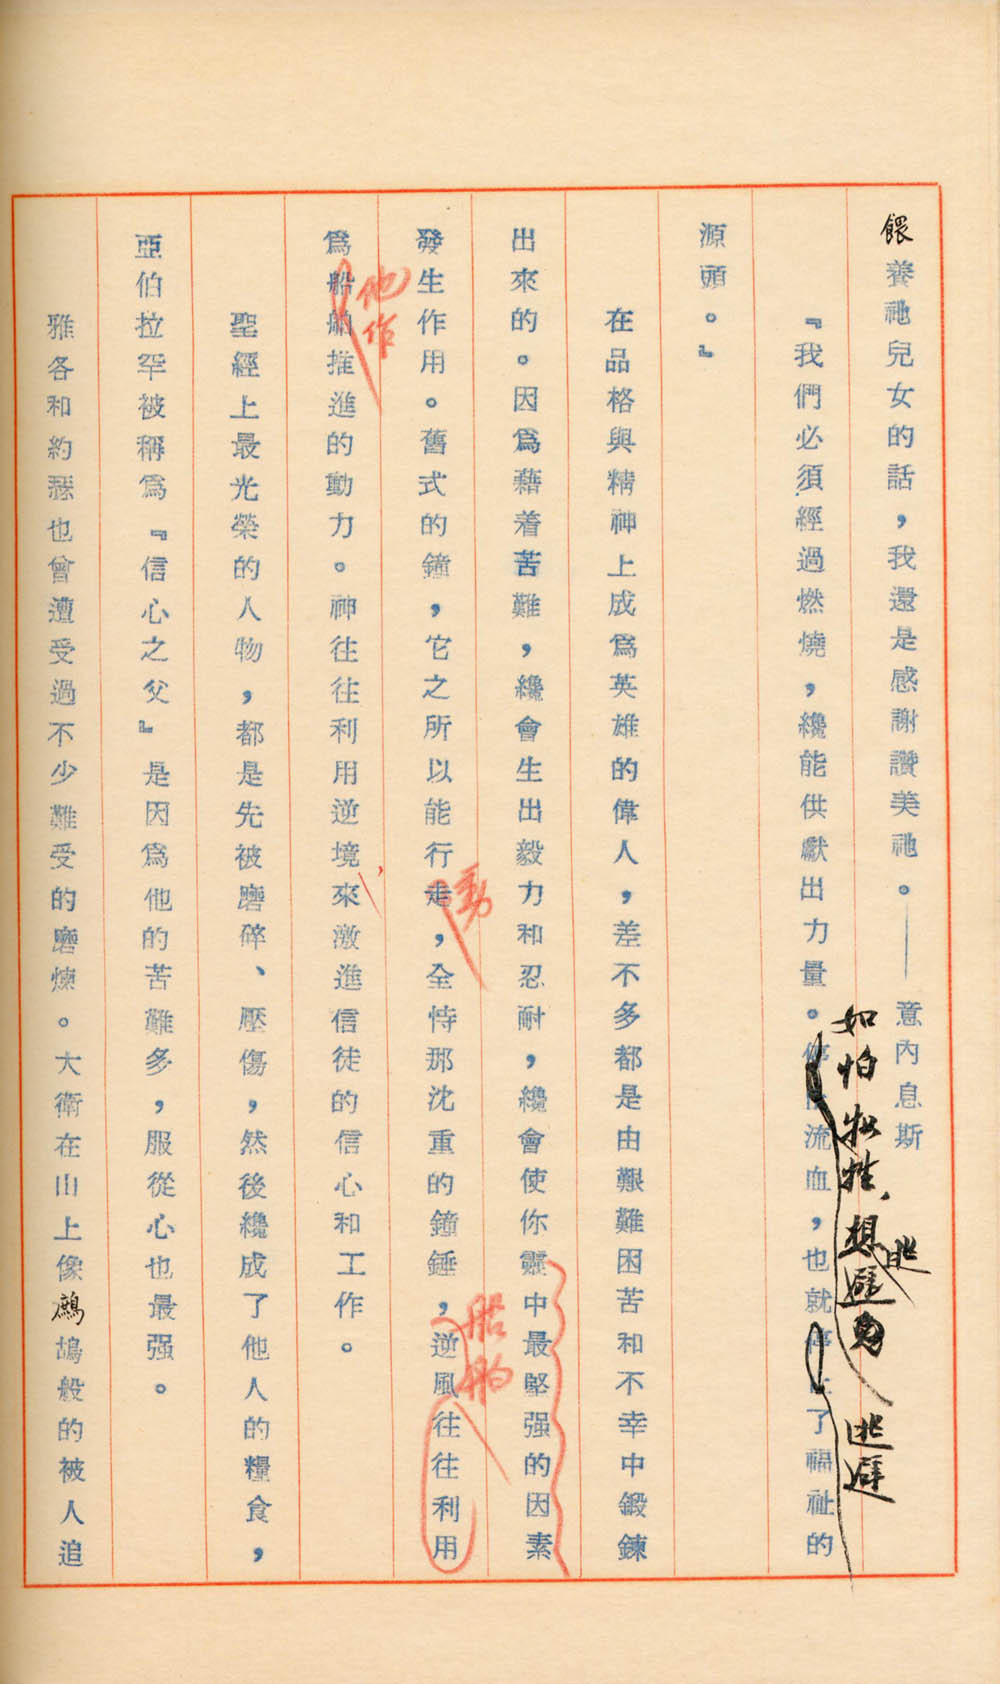 餵養祂兒女的話，我還是感謝讚美祂。——意內息斯
『我們必須經過燃燒，纔能供獻出力量。停止流血，也就停止了福祉的
如怕犧牲、想逃避
逃避
源頭。』
在品格與精神上成爲英雄的偉人，差不多都是由艱難困苦和不幸中鍛鍊
出來的。因爲藉着苦難，纔會生出毅力和忍耐，纔會使你靈中最堅强的因素
發生作用。舊式的鐘，它之所以能行走，全恃那沈重的鐘錘，逆風往往利用
動
船舶
爲船舶推進的動力。神往往利用逆境來激進信徒的信心和工作。
他作
，
聖經上最光榮的人物，都是先被磨碎、壓傷，然後纔成了他人的糧食，
亞伯拉罕被稱爲『信心之父』是因爲他的苦難多，服從心也最强。
雅各和約瑟也曾遭受過不少難受的磨煉。大衛在山上像鷓鴣般的被人追